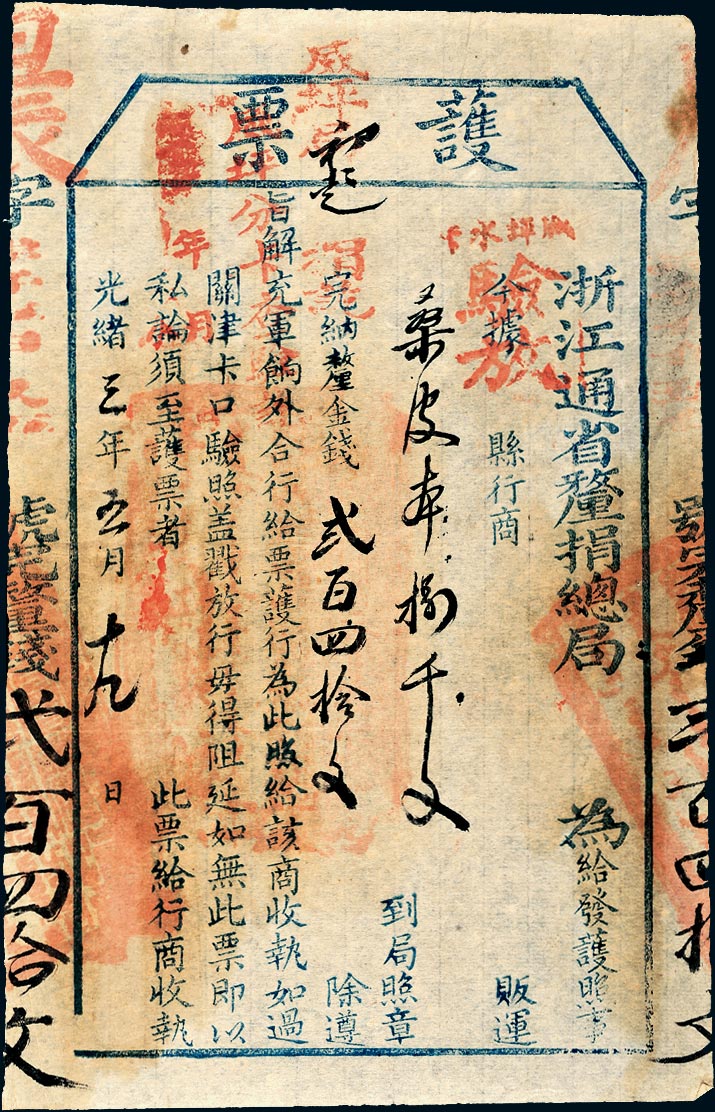 護票
浙江通省釐捐總局
為給發護照事
今據
縣行商
販運
桑皮本捌千文
到局照章
完納釐金錢
弍百四拾文
除遵
旨解充軍餉外合行給票護行為此照給該商收執如過
關津卡口驗照盖戳放行毋得阻延如無此票即以
私論須至護票者
此票給行商收執
光緒三年五月十九日
驗放
字
號完釐錢弍百四拾文